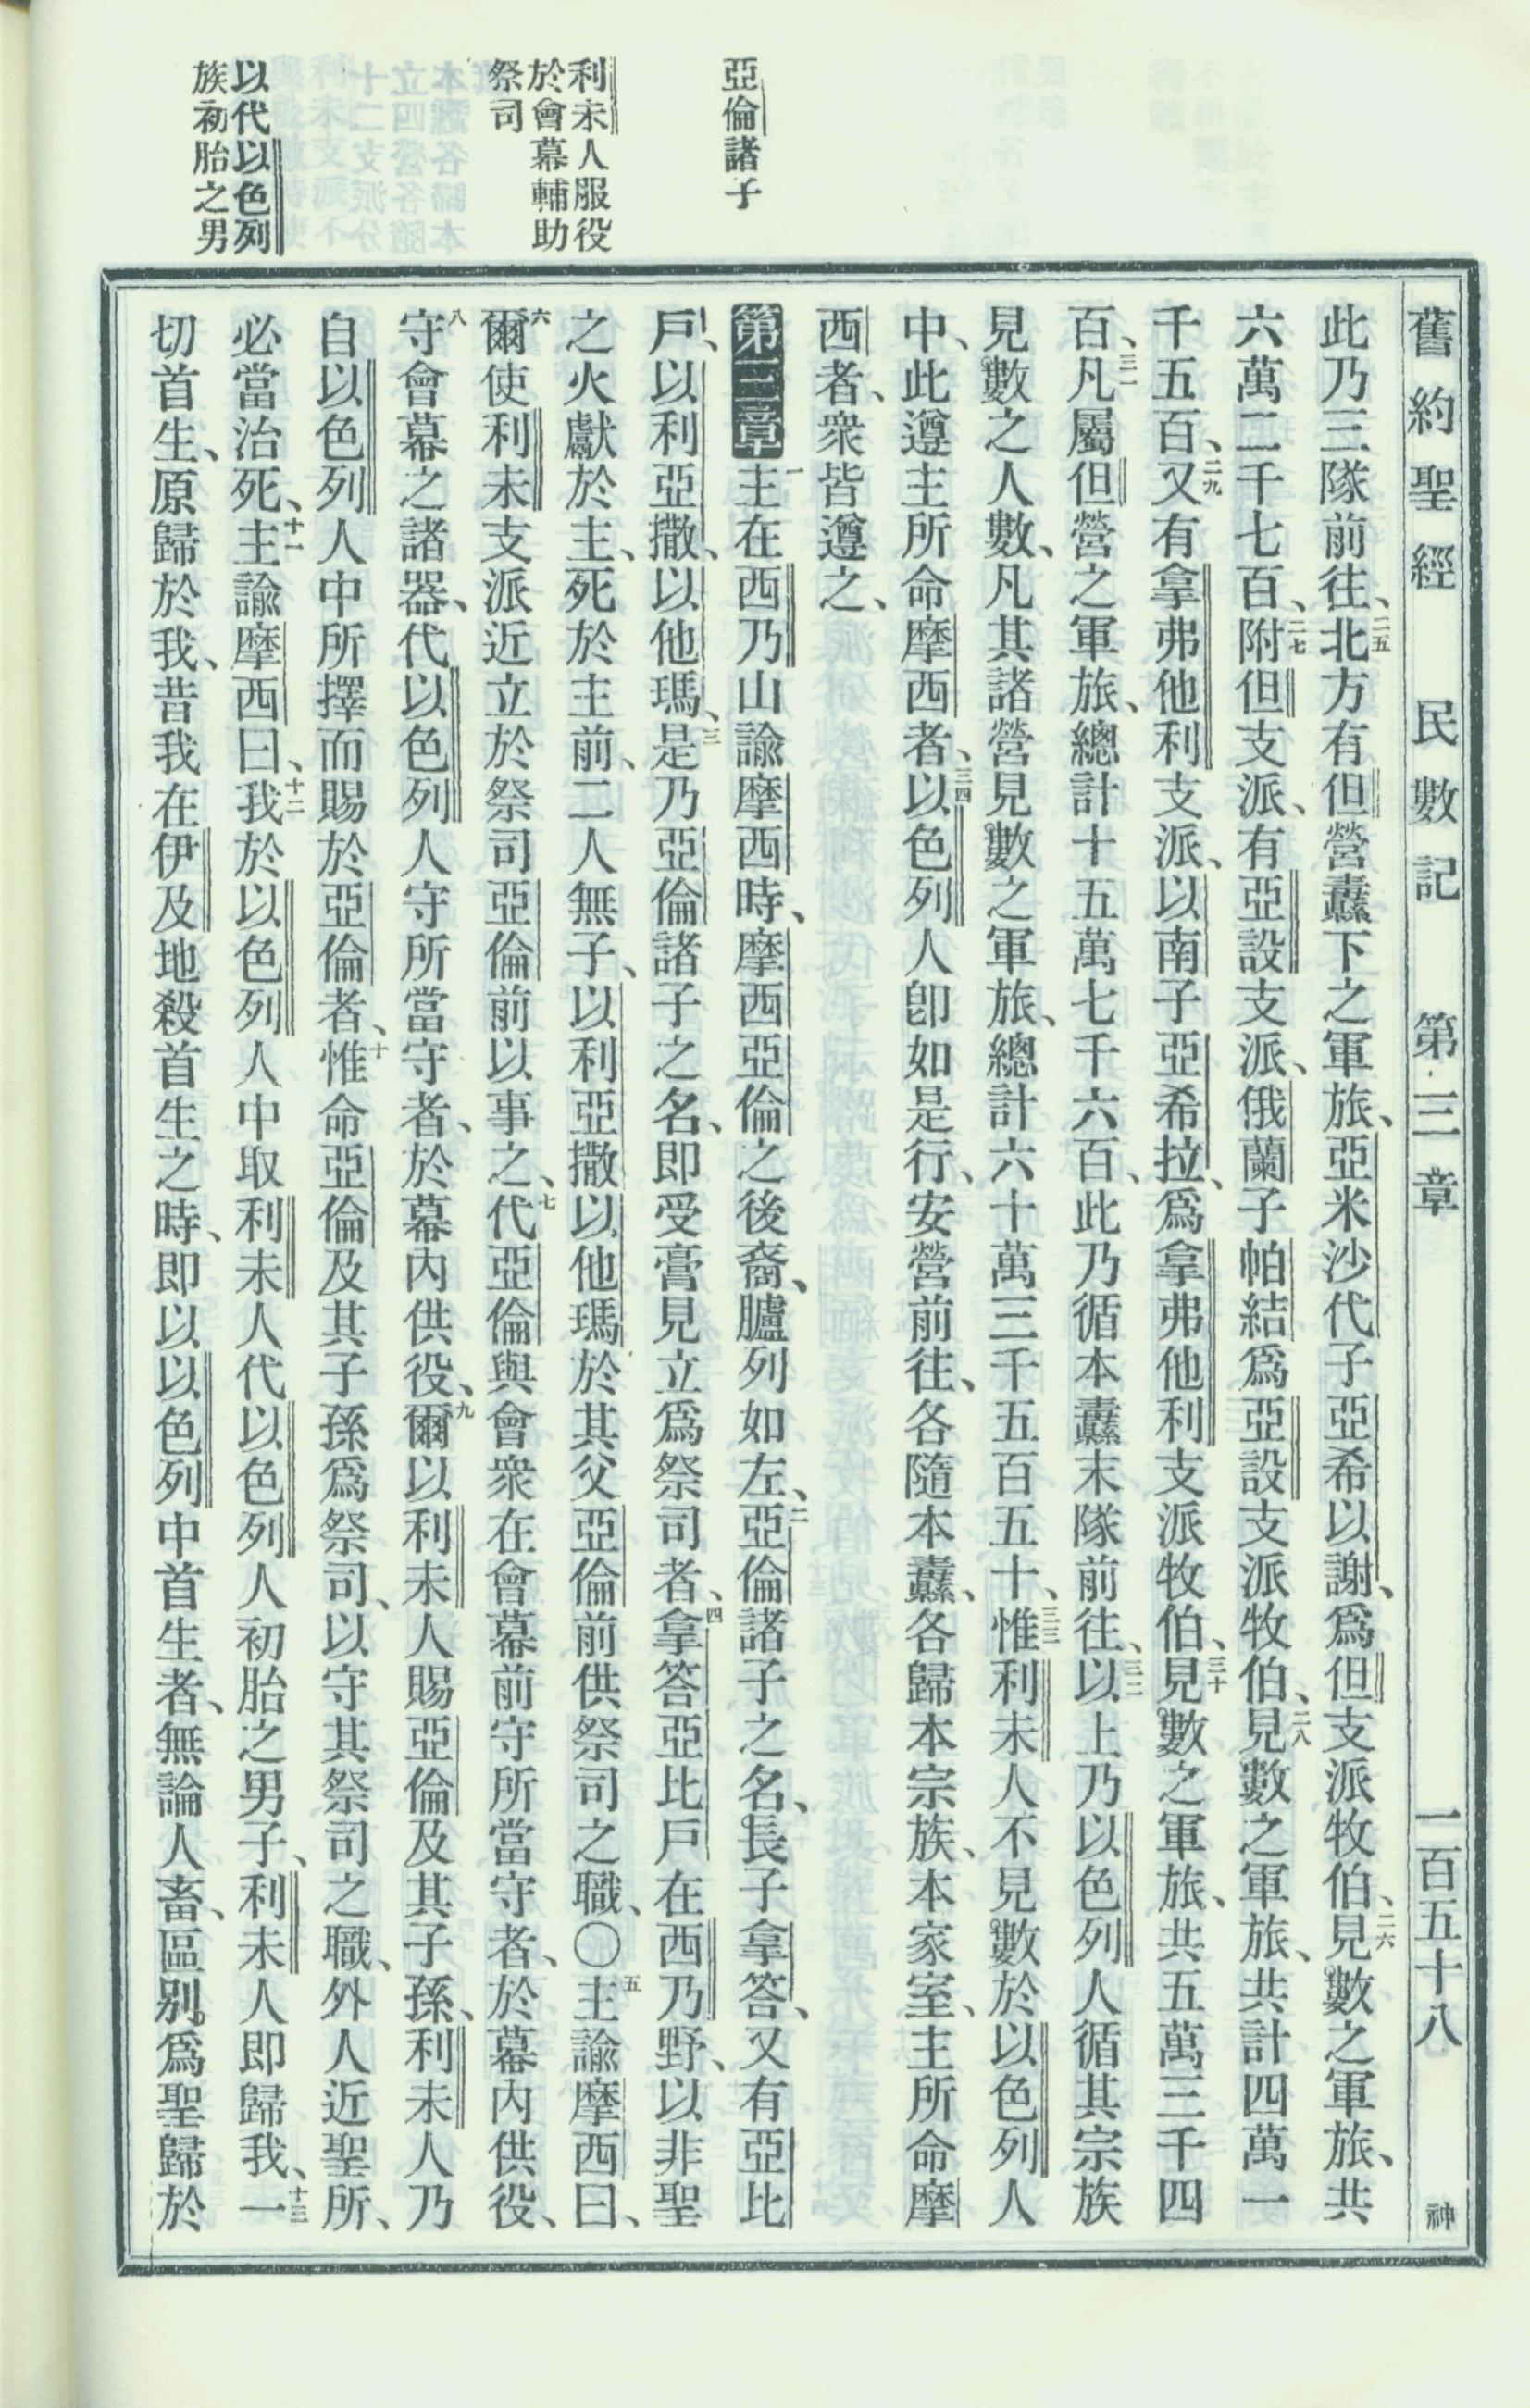 舊約聖經　民數記　第三章　一百五十八　神
此乃三隊前往、二五北方有但營纛下之軍旅、亞米沙代子亞希以謝、爲但支派牧伯、二六見數之軍旅、共
六萬二千七百、二七附但支派、有亞設支派、俄蘭子帕結爲亞設支派牧伯、二八見數之軍旅、共計四萬一
千五百、二九又有拿弗他利支派、以南子亞希拉、爲拿弗他利支派牧伯、三十見數之軍旅、共五萬三千四
百、三一凡屬但營之軍旅、總計十五萬七千六百、此乃循本纛末隊前往、三二以上乃以色列人循其宗族
見數之人數、凡其諸營見數之軍旅、總計六十萬三千五百五十、三三惟利未人不見數於以色列人
中、此遵主所命摩西者、三四以色列人卽如是行、安營前往、各隨本纛、各歸本宗族、本家室、主所命摩
西者、衆皆遵之、
亞倫諸子
第三章一主在西乃山諭摩西時、摩西亞倫之後裔、臚列如左、二亞倫諸子之名、長子拿答、又有亞比
戶、以利亞撒、以他瑪、三是乃亞倫諸子之名、即受膏見立爲祭司者、四拿答亞比戶在西乃野、以非聖
利未人服役
於會幕輔助
祭司
之火獻於主、死於主前、二人無子、以利亞撒以他瑪於其父亞倫前供祭司之職、〇五主諭摩西曰、
六爾使利未支派近立於祭司亞倫前以事之、七代亞倫與會衆在會幕前守所當守者、於幕內供役、
八守會幕之諸器、代以色列人守所當守者、於幕內供役、九爾以利未人賜亞倫及其子孫、利未人乃
自以色列人中所擇而賜於亞倫者、十惟命亞倫及其子孫爲祭司、以守其祭司之職、外人近聖所、
以代以色列
族初胎之男
必當治死、十一主諭摩西曰、十二我於以色列人中取利未人代以色列人初胎之男子、利未人即歸我、十三一
切首生、原歸於我、昔我在伊及地殺首生之時、即以以色列中首生者、無論人畜、區別爲聖歸於